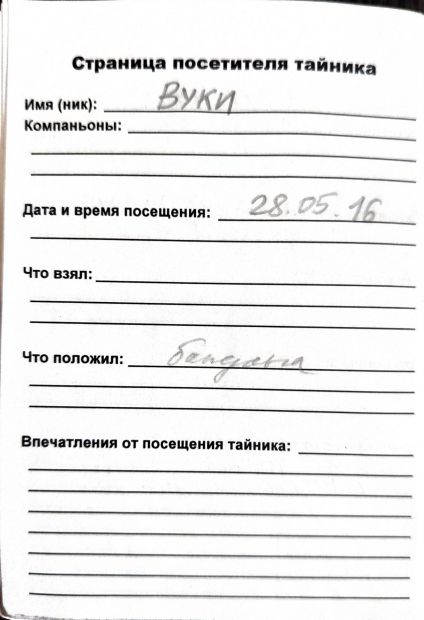 Страница посетителя тайника
Имя (ник): ВУКИ
Компаньоны:
Дата и время посещения: 28.05.16
Что взял:
Что положил:
Впечатления от посещения тайника: